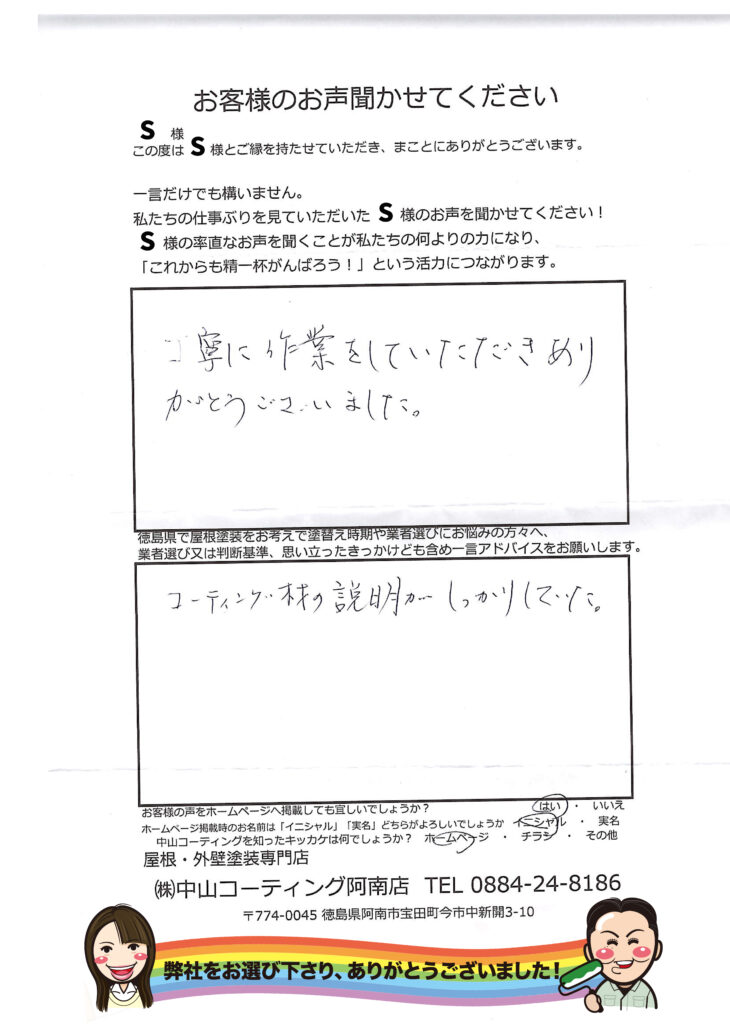 お客様のお声聞かせてください
S 様
この度は S 様とご縁を持たせていただき、まことにありがとうございます。
一言だけでも構いません。
私たちの仕事ぶりを見ていただいた S 様のお声を聞かせてください！
S 様の率直なお声を聞くことが私たちの何よりの力になり、
「これからも精一杯がんばろう！」という活力につながります。
丁寧に作業をしていただきあり
がとうございました。
徳島県で屋根塗装をお考えで塗替え時期や業者選びにお悩みの方々へ、
業者選び又は判断基準、思い立ったきっかけども含め一言アドバイスをお願いします。
コーティング材の説明がしっかりしていた。
お客様の声をホームページへ掲載しても宜しいでしょうか？ はい ・ いいえ
ホームページ掲載時のお名前は「イニシャル」「実名」どちらがよろしいでしょうか イニシャル ・ 実名
中山コーティングを知ったキッカケは何でしょうか？ ホームページ ・ チラシ ・ その他
屋根・外壁塗装専門店
㈱中山コーティング阿南店 TEL 0884-24-8186
〒774-0045 徳島県阿南市宝田町今市中新開3-10
弊社をお選び下さり、ありがとうございました！